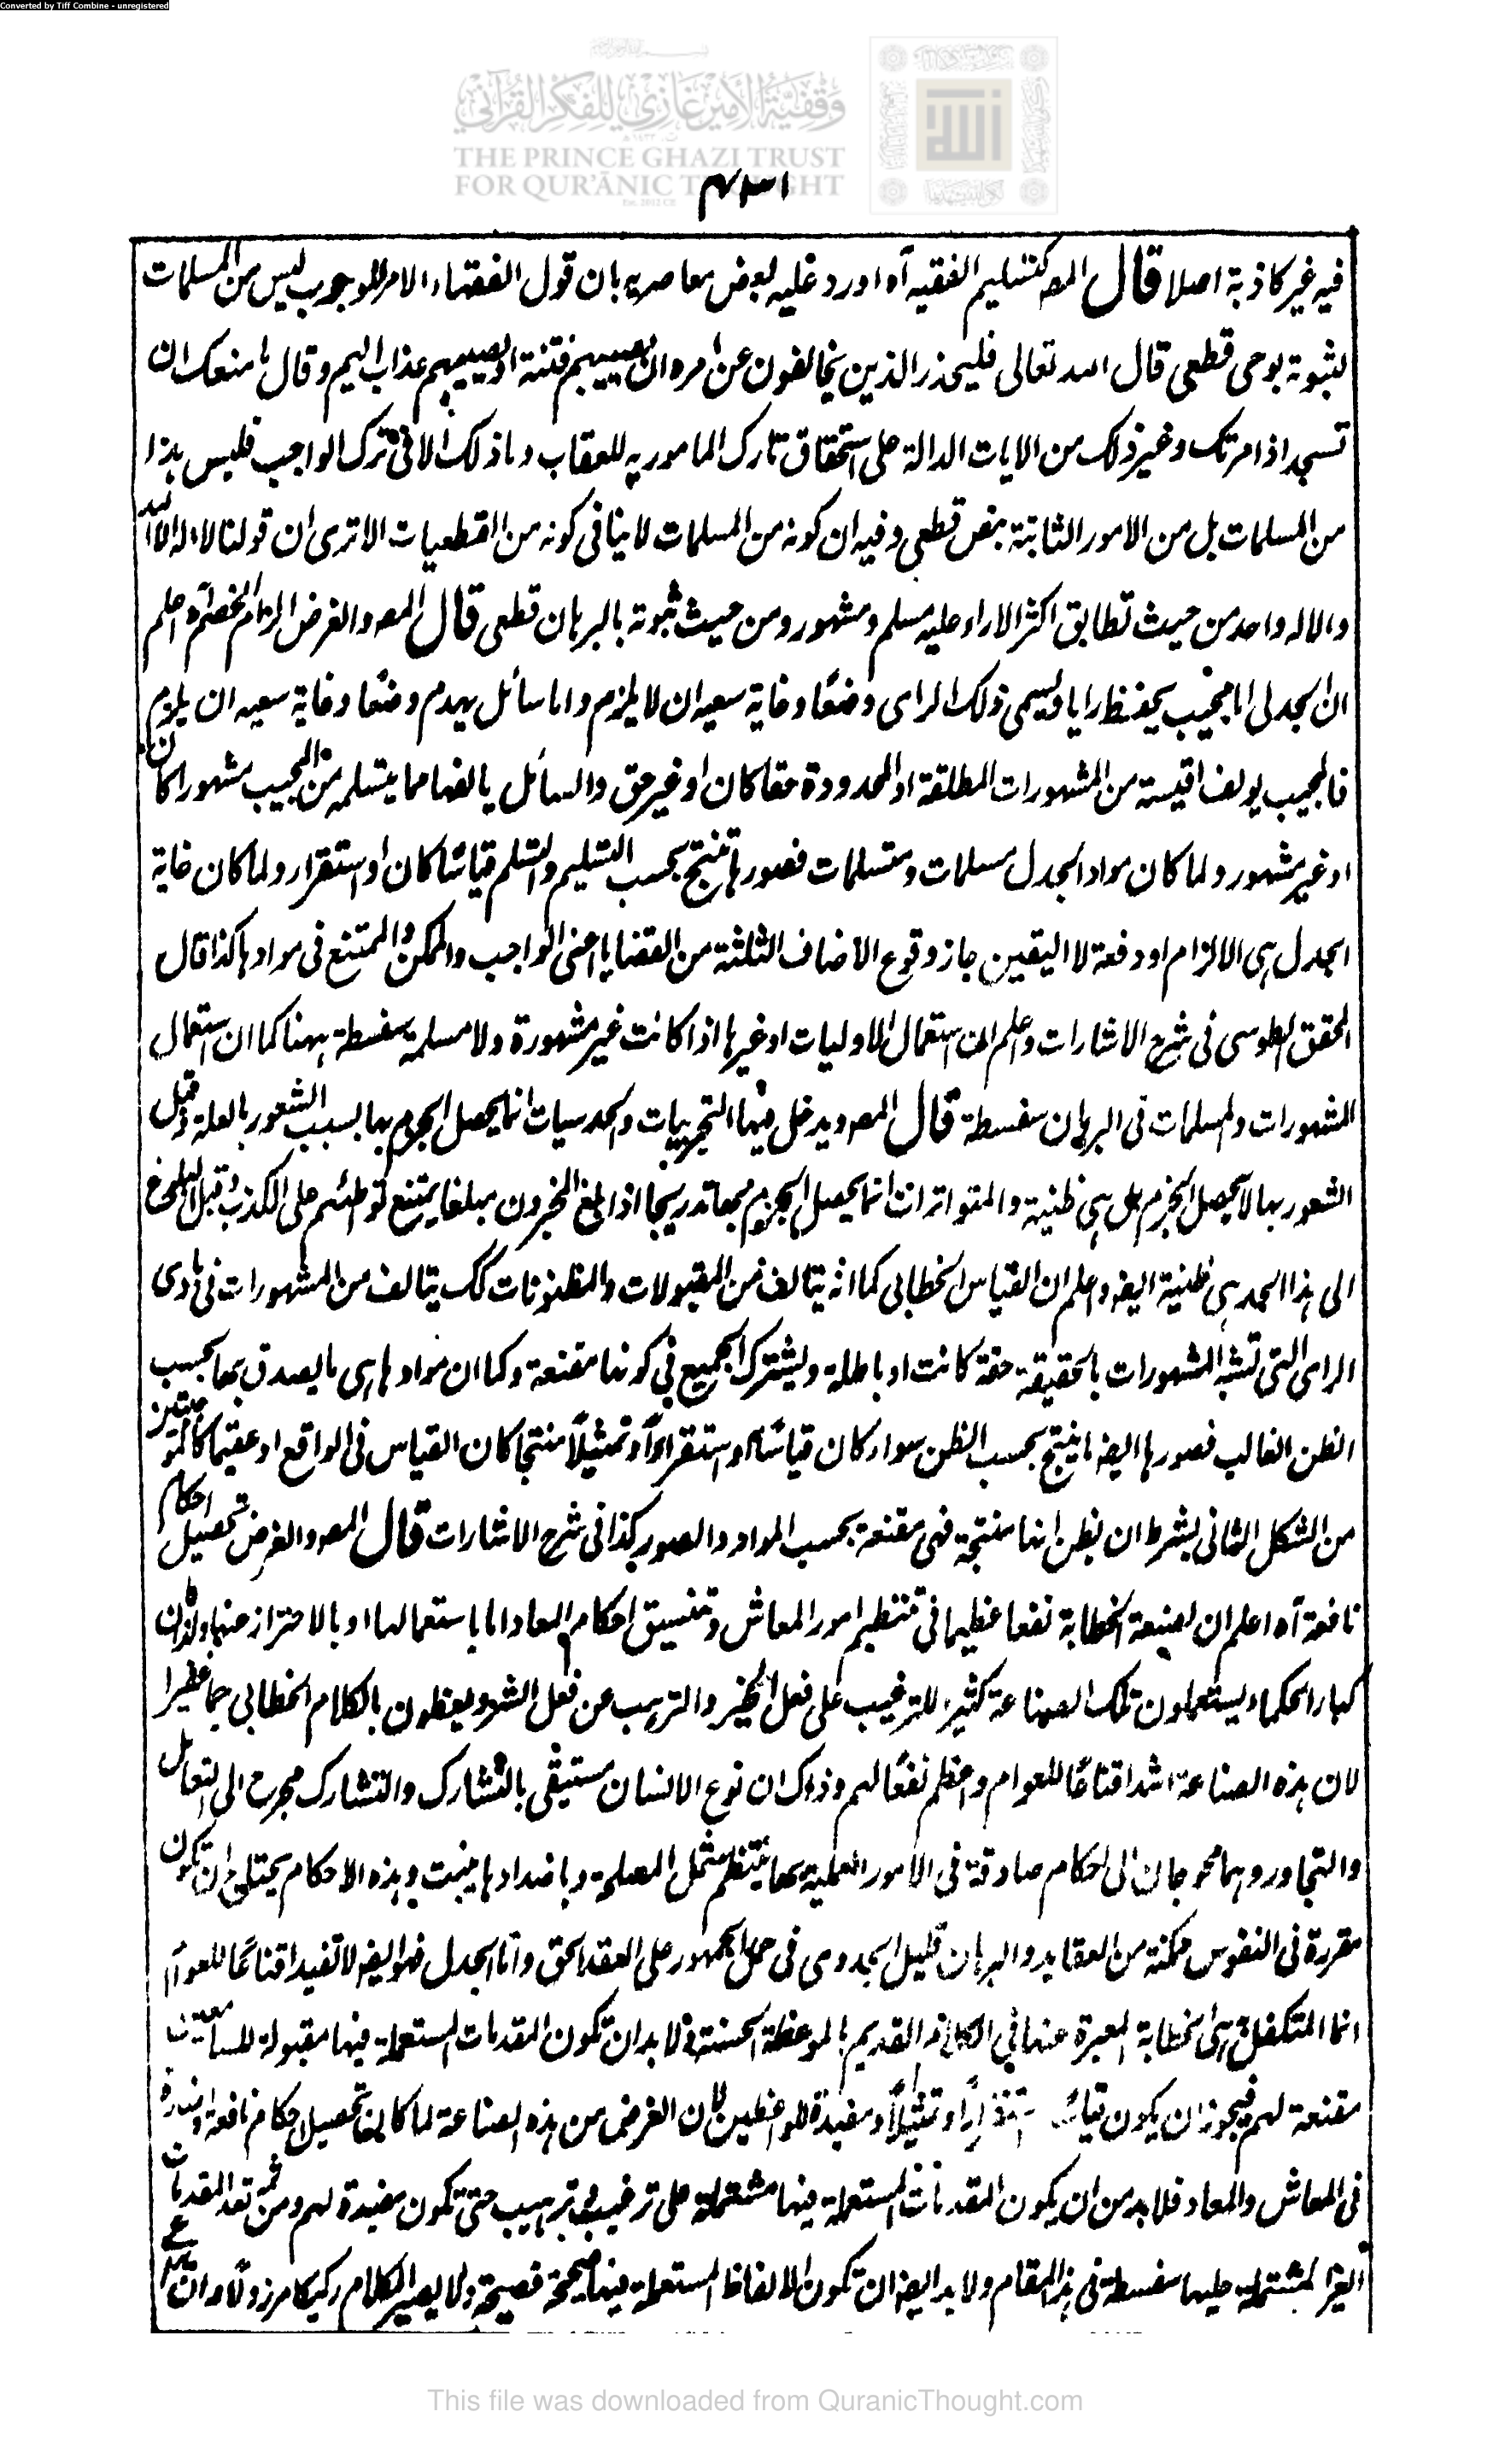 Converted by Tiff Combine - unregistered
وقفية الأمير غازي للفكر القرآني
THE PRINCE GHAZI TRUST
FOR QUR'ĀNIC THOUGHT
٤٣١
فيه غير كاذبة اصلا قال المصـ كتسليم الفقيه آه اورد عليه بعض معاصريه بان قول الفقهاء الامر للوجوب ليس من المسلمات
لثبوته بوحى قطعى قال الله تعالى فليحذر الذين يخالفون عن امره ان تصيبهم فتنة او يصيبهم عذاب اليم وقال ما منعك ان
تسجد اذ امرتك وغير ذلك من الايات الدالة على استحقاق تارك المامور به للعقاب وما ذلك الا فى ترك الواجب فليس هذا
من المسلمات بل من الامور الثابتة بنص قطعى وفيه ان كونه من المسلمات لا ينافى كونه من القطعيات الا ترى ان قولنا لا اله الا الله
والاله واحد من حيث تطابق اكثر الاراء عليه مسلم ومشهور ومن حيث ثبوته بالبرهان قطعى قال المصـ والغرض الزام الخصم آه اعلم
ان الجدلى اما مجيب يحفظ رايا ويسمى ذلك الراى وضعًا وغاية سعيه ان لا يلزم واما سائل يهدم وضعًا وغاية سعيه ان يلزم
فالمجيب يولف اقيسة من المشهورات المطلقة او المحدودة حقا كان او غير حق والسائل يالفها مما يتسلمه من المجيب مشهورا كان
او غير مشهور ولما كان مواد الجدل مسلمات ومتسلمات فصورها تنتج بحسب التسليم والتسلم قياسًا كان او استقرار ولما كان غاية
الجدل هى الالزام او دفعه لا اليقين جاز وقوع الاصناف الثلثة من القضايا اعنى الواجب والممكن والممتنع فى موادها كذا قال
المحقق الطوسى فى شرح الاشارات واعلم ان استعمال الاوليات او غيرها اذا كانت غير مشهورة ولا مسلمة سفسطة ههنا كما ان استعمال
المشهورات والمسلمات فى البرهان سفسطة قال المصـ ويدخل فيها التجربيات والحدسيات انما يحصل الجزم بها بسبب الشعور بالعلة وقبل
الشعور بها لا يحصل الجزم بل هى ظنية والمتواترات انما يحصل الجزم بها تدريجا اذا بلغ المخبرون مبلغا يمتنع تواطئهم على الكذب وقبل البلوغ
الى هذا الحد هى ظنية ايضـ واعلم ان القياس الخطابى كما انه يتالف من المقبولات والمظنونات كك يتالف من المشهورات فى بادى
الراى التى تشبه المشهورات بالحقيقة حقة كانت او باطلة ويشترك الجميع فى كونها مقنعة وكما ان موادها هى ما يصدق بها بحسب
الظن الغالب فصورها ايضـ ما ينتج بحسب الظن سواء كان قياسًا او استقراءً او تمثيلًا منتجا كان القياس فى الواقع او عقيما كالموجبتين
من الشكل الثانى بشرط ان يظن انها منتجة فهى مقنعة بحسب المواد والصور كذا فى شرح الاشارات قال المصـ والغرض تحصيل احكام
نافعة آه اعلم ان لصنعة الخطابة نفعا عظيما فى تنظيم امور المعاش وتنسيق احكام المعاد اما باستعمالها او بالاحتراز عنها ولذا ان
كبار الحكماء يستعملون تلك الصناعة كثيرا للترغيب على فعل الخير والترهيب عن فعل الشر ويعظون بالكلام الخطابى جما غفيرا
لان هذه الصناعة اشد اقناعًا للعوام واعظم نفعًا لهم وذلك ان نوع الانسان مستبقى بالتشارك والتشارك محوج الى التعامل
والتجاور وهما محوجان الى احكام صادقة فى الامور العملية بها ينتظم شمل المصلحة وباضدادها يتشتت وهذه الاحكام يحتاج ان تكون
مقررة فى النفوس ممكنة من العقايد والبرهان قليل الجدوى فى حمل الجمهور على العقد الحق واما الجدل فهو ايضـ لا تفيد اقناعًا للعوام
انما المتكفل هى الخطابة المعبرة عنها فى الكلام القديم بالموعظة الحسنة فلا بد ان تكون المقدمات المستعملة فيها مقبولة للسامعين
مقنعة لهم فيجوز ان يكون قياسًا استقراءً او تمثيلًا ومفيدة للواعظين لان الغرض من هذه الصناعة لما كان تحصيل احكام نافعة او ضارة
فى المعاش والمعاد فلا بد من ان يكون المقدمات المستعملة فيها مشتملة على ترغيب وترهيب حتى تكون مفيدة لهم ومن ثمه تعد المقدمات
الغير المشتملة عليها سفسطة فى هذا المقام ولا بد ايضـ ان تكون الالفاظ المستعملة فيها صحيحة فصيحة ولا يصير الكلام ركيكا مرذولًا وان
This file was downloaded from QuranicThought.com